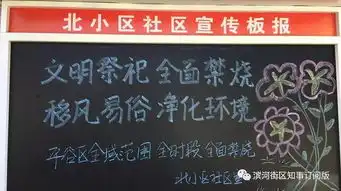 北小区社区宣传板报
文明祭祀 全面禁烧
移风易俗 净化环境
平谷区全域范围 全时段 全面禁烧
北小区社区宣
滨河街区知事订阅版